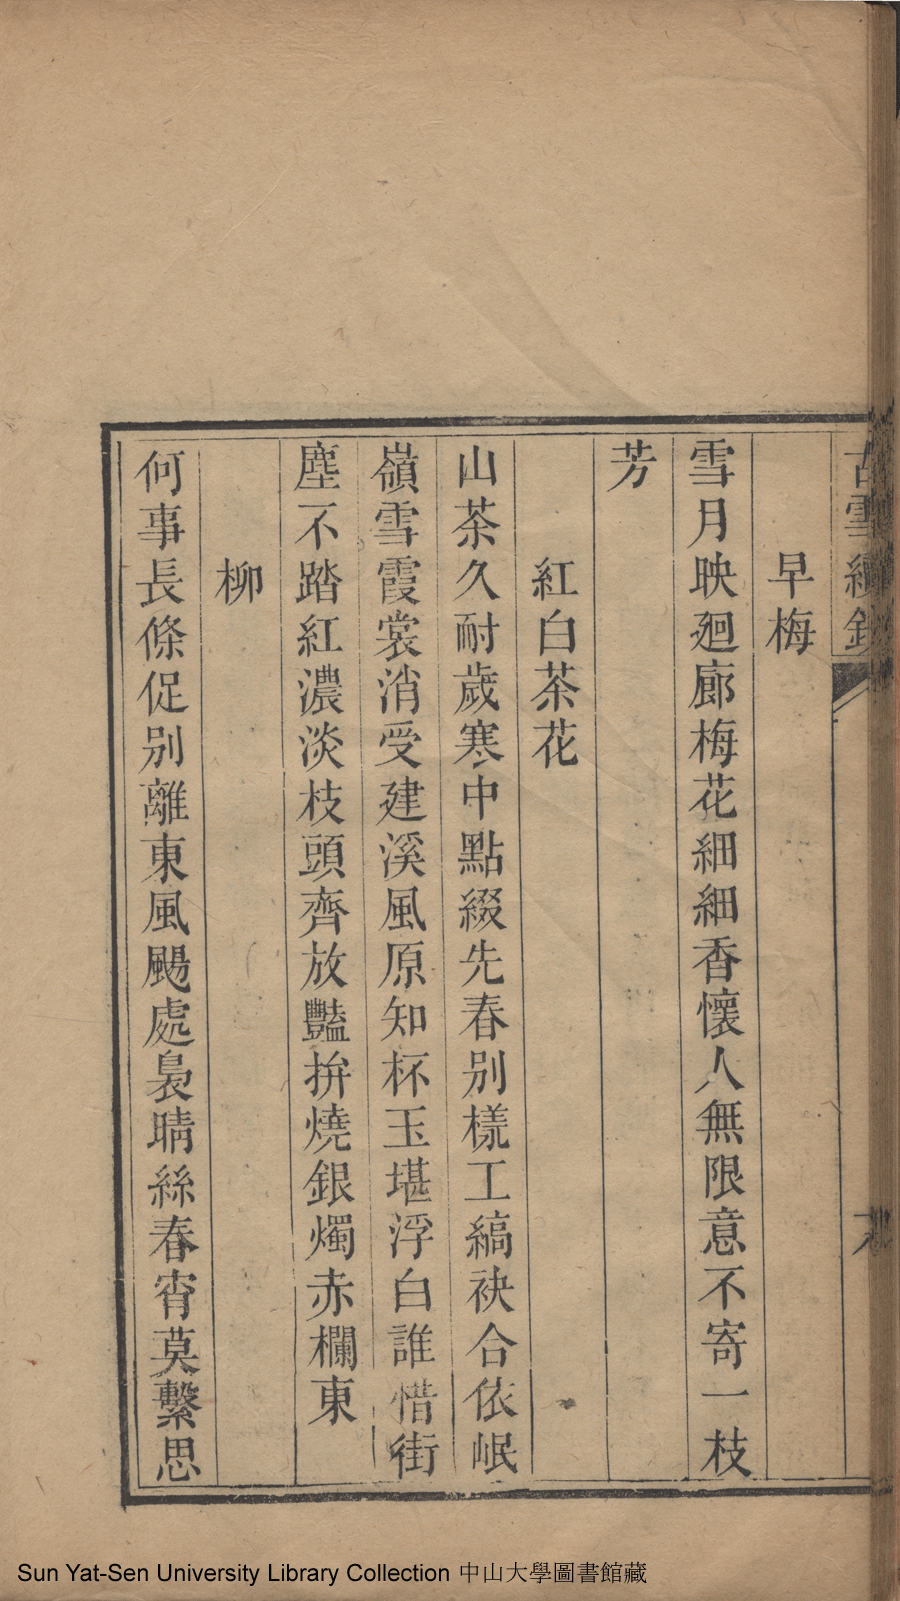 古雪續鈔
早梅
雪月映廻廊梅花細細香懷人無限意不寄一枝
芳
紅白茶花
山茶久耐歲寒中點綴先春別樣工縞袂合依岷
嶺雪霞裳消受建溪風原知杯玉堪浮白誰惜街
塵不踏紅濃淡枝頭齊放豔拚燒銀燭赤欄東
柳
何事長條促別離東風颺處裊晴絲春宵莫繫思
Sun Yat-Sen University Library Collection 中山大學圖書館藏